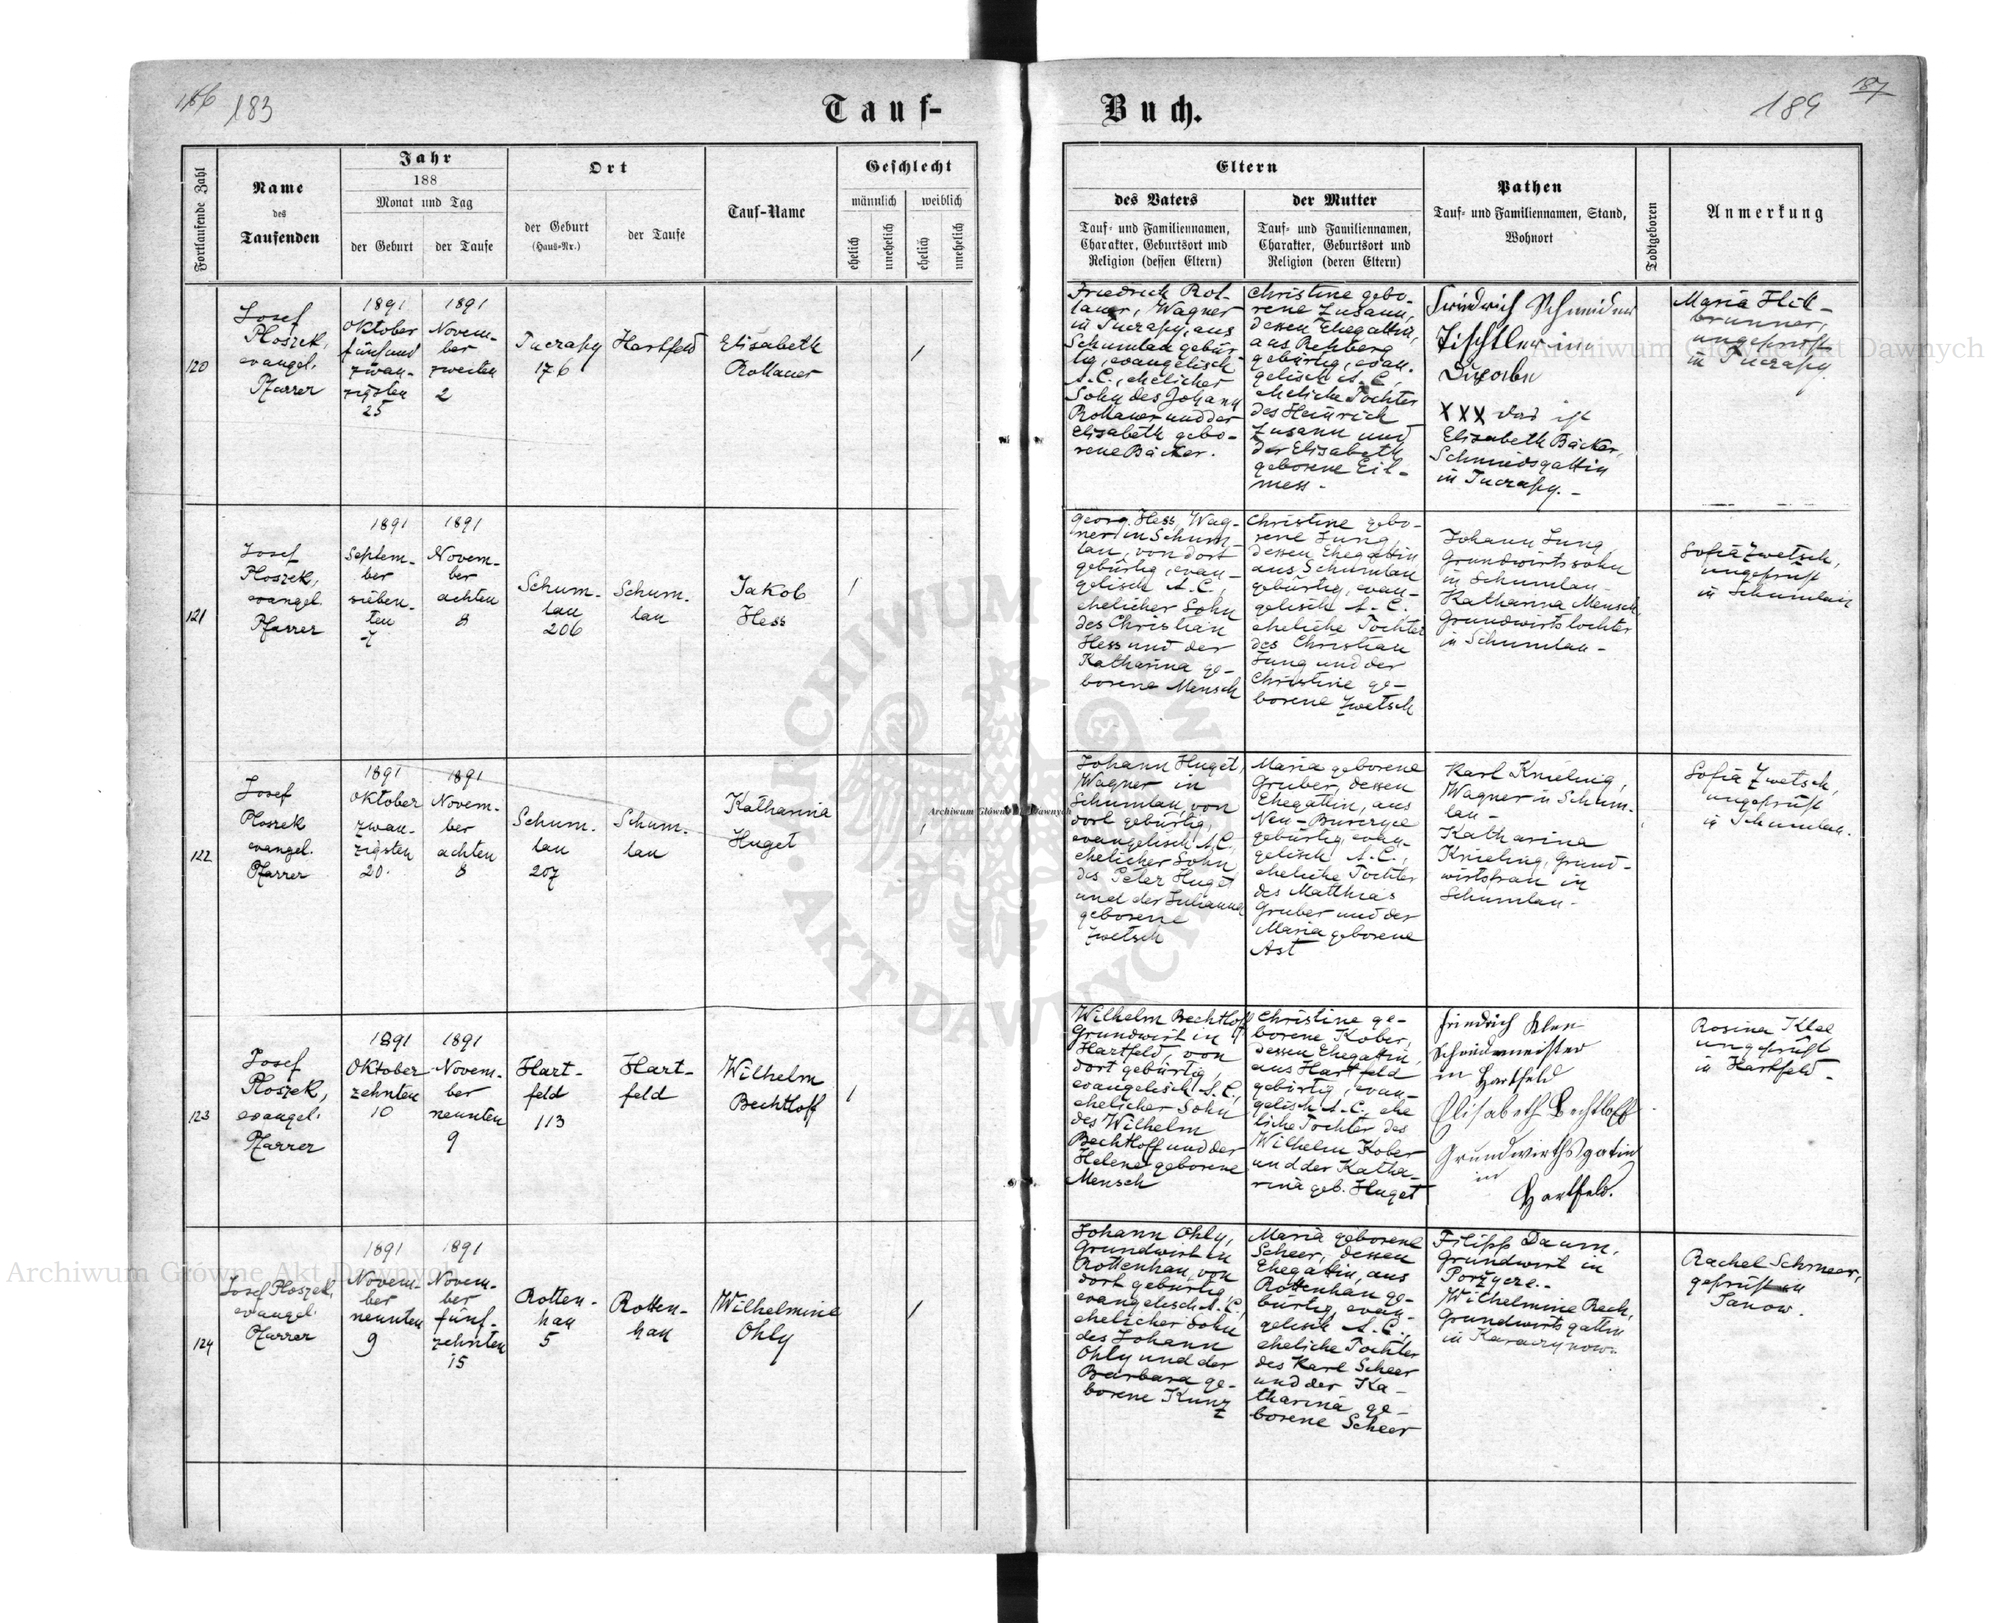 186 183
Tauf-
Buch.
189 187
Fortlaufende Zahl
Name
des
Taufenden
Jahr
188
Monat und Tag
der Geburt
der Taufe
Ort
der Geburt
(Haus-Nr.)
der Taufe
Tauf-Name
Geschlecht
männlich
weiblich
ehelich
unehelich
ehelich
unehelich
Eltern
des Vaters
Tauf- und Familiennamen,
Charakter, Geburtsort und
Religion (dessen Eltern)
der Mutter
Tauf- und Familiennamen,
Charakter, Geburtsort und
Religion (deren Eltern)
Pathen
Tauf- und Familiennamen, Stand,
Wohnort
Todtgeboren
Anmerkung
120
Josef
Ploszek,
evangel.
Pfarrer
1891
Oktober
fünfund
zwan-
zigsten
25
1891
Novem-
ber
zweiten
2
Tuczapy
176
Hartfeld
Elisabeth
Rollauer
1
Friedrich Rol-
lauer, Wagner
in Tuczapy, aus
Schumlau gebür-
tig, evangelisch
A.C., ehelicher
Sohn des Johann
Rollauer und der
Elisabeth gebo-
rene Bäcker.
Christine gebo-
rene Zusann,
dessen Ehegattin,
aus Rehberg
gebürtig, evan-
gelisch A.C.,
eheliche Tochter
des Heinrich
Zusann und
der Elisabeth
geborene Eil-
mess.
Friedrich Schneider
Tischtler in
XXX das ist
Elisabeth Bäcker,
Schmiedsgattin
in Tuczapy. -
Maria Hell-
brunner,
ungeprüft
in Tuczapy.
121
Josef
Ploszek,
evangel.
Pfarrer
1891
Septem-
ber
sieben-
ten
7
1891
Novem-
ber
achten
8
Schum-
lau
206
Schum-
lau
Jakob
Hess
1
Georg Hess, Wag-
ner in Schum-
lau, von dort
gebürtig, evan-
gelisch A.C.,
ehelicher Sohn
des Christian
Hess und der
Katharina ge-
borene Mensch
Christine gebo-
rene Jung,
dessen Ehegattin
aus Schumlau
gebürtig, evan-
gelisch A.C.
eheliche Tochter
des Christian
Jung und der
Christine ge-
borene Zwetsch
Johann Jung
Grundwirtssohn
in Schumlau
Katharina Mensch
Grundwirtstochter
in Schumlau -
Sofia Zwetsch,
ungeprüft
in Schumlau
122
Josef
Ploszek
evangel.
Pfarrer
1891
Oktober
zwan-
zigsten
20.
1891
Novem-
ber
achten
8
Schum-
lau
207
Schum-
lau
Katharina
Huget
1
Johann Huget,
Wagner in
Schumlau, von
dort gebürtig,
evangelisch A.C.,
ehelicher Sohn
des Peter Huget
und der Julianna
geborene
Zwetsch
Maria geborene
Gruber, dessen
Ehegattin, aus
Neu-Burczyce
gebürtig, evan-
gelisch A.C.,
eheliche Tochter
des Matthias
Gruber und der
Maria geborene
Ast
Karl Knieling,
Wagner in Schum-
lau -
Katharina
Knieling, Grund-
wirtsfrau in
Schumlau -
Sofia Zwetsch,
ungeprüft
in Schumlau.
123
Josef
Ploszek,
evangel.
Pfarrer
1891
Oktober
zehnten
10
1891
Novem-
ber
neunten
9
Hart-
feld
113
Hart-
feld
Wilhelm
Bechtloff
1
Wilhelm Bechtloff
Grundwirt in
Hartfeld, von
dort gebürtig,
evangelisch A.C.,
ehelicher Sohn
des Wilhelm
Bechtloff und der
Helene geborene
Mensch
Christine ge-
borene Kober,
dessen Ehegattin,
aus Hartfeld
gebürtig, evan-
gelisch A.C. ehe
liche Tochter des
Wilhelm Kober
und der Katha-
rina geb. Huget
Friedrich Klee
Schneidermeister
in Hartfeld
Elisabeth Bechtloff
Grundwirthsgatin
in
Hartfeld.
Rosina Klee
ungeprüft
in Hartfeld -
124
Josef Ploszek,
evangel.
Pfarrer
1891
Novem-
ber
neunten
9
1891
Novem-
ber
fünf-
zehnten
15
Rotten-
han
5
Rotten-
han
Wilhelmine
Ohly
1
Johann Ohly,
Grundwirt in
Rottenhan, von
dort gebürtig,
evangelisch A.C.,
ehelicher Sohn
des Johann
Ohly und der
Barbara ge-
borene Kunz
Maria geborene
Scheer, dessen
Ehegattin, aus
Rottenhan ge-
bürtig, evan-
gelisch A.C.,
eheliche Tochter
des Karl Scheer
und der Ka-
tharina ge-
borene Scheer
Filipp Daum,
Grundwirt in
Porzycze.-
Wilhelmine Rech,
Grundwirtsgattin
in Karaczynow.
Rachel Schmeer,
geprüft in
Janow.
Archiwum Główne Akt Dawnych
Archiwum Główne Akt Dawnych
Archiwum Główne Akt Dawnych
ARCHIWUM GŁÓWNE AKT DAWNYCH